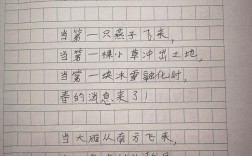 当第一只燕子飞来，
当第一棵小草冲出土地，
当第一块冰雪融化时，
春的消息来了！
当大雁从南方飞来，